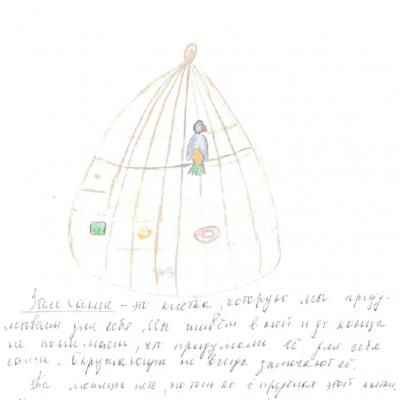 Заикание - это клетка, которую мы приду-
мываем для себя. Мы живём в ней и до конца
не понимаем, что придумали её для себя
сами. Окружающие не всегда замечают её.
Ты можешь петь, но только в пределах этой клетки.